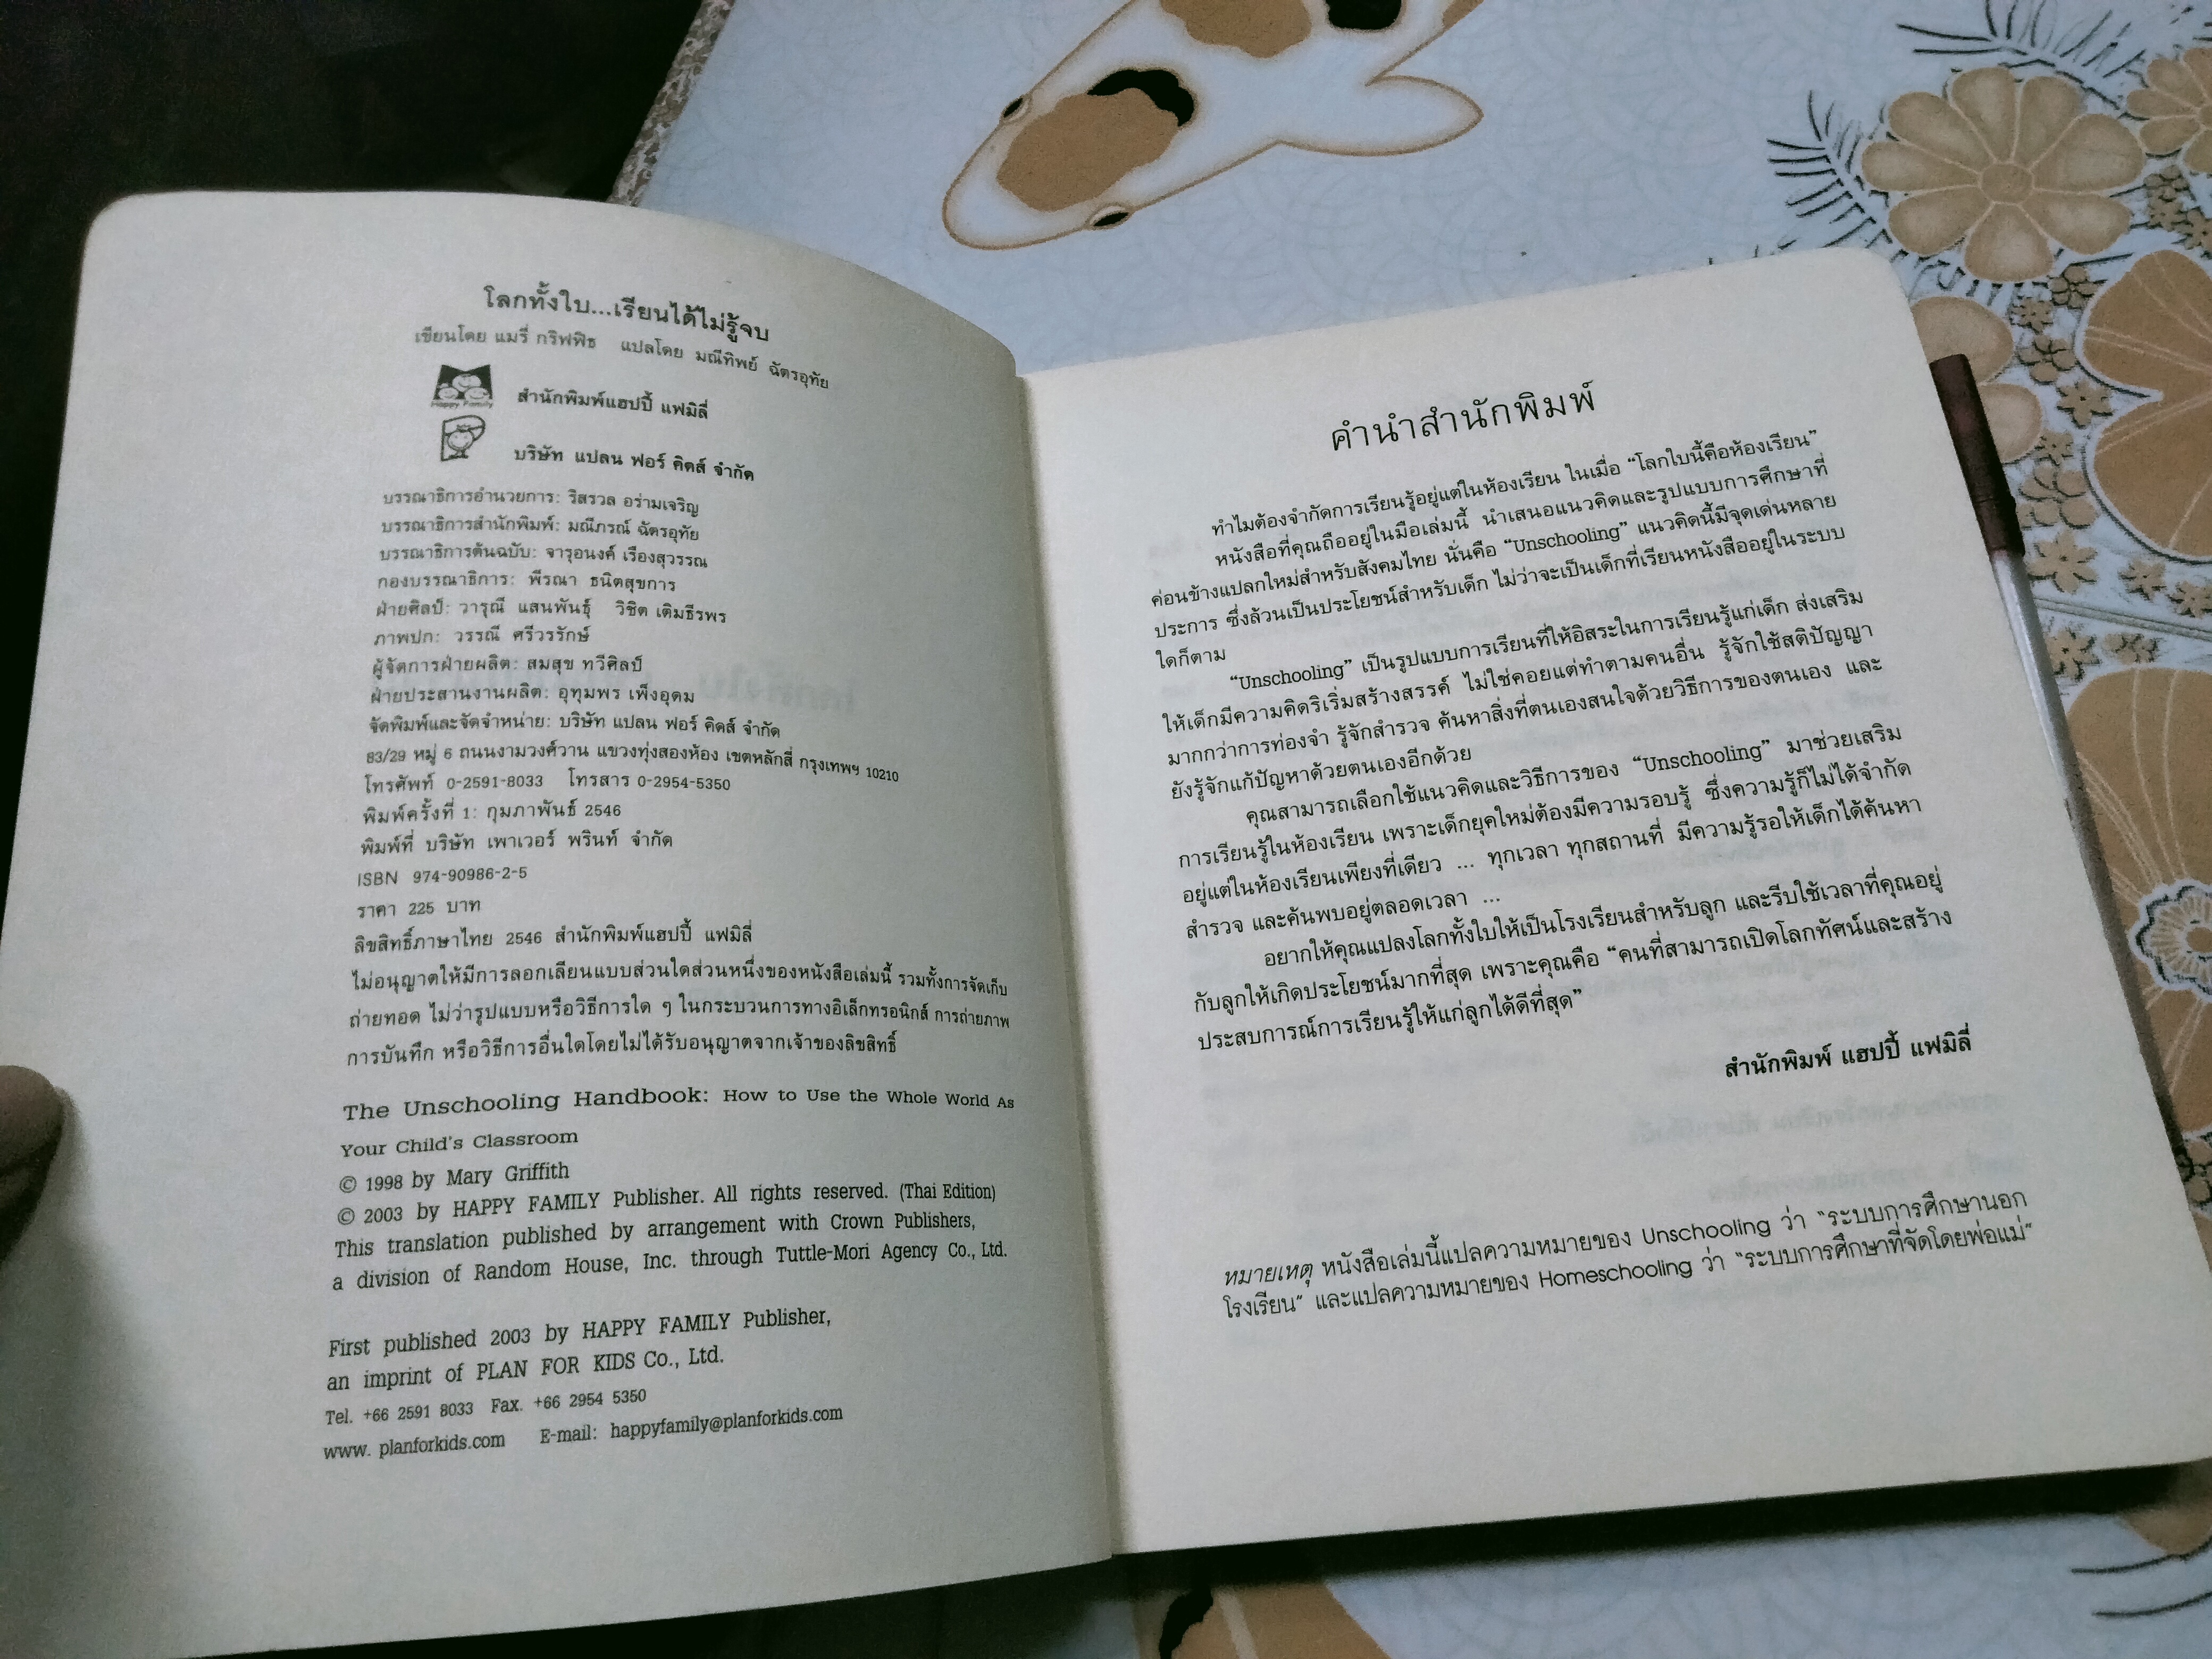 โลกทั้งใบ...เรียนได้ไม่รู้จบ
เขียนโดย แมรี่ กริฟฟิธ แปลโดย มณีทิพย์ ฉัตรอุทัย
Happy Family
สำนักพิมพ์แฮปปี้ แฟมิลี่
บริษัท แปลน ฟอร์ คิดส์ จำกัด
บรรณาธิการอำนวยการ: ริสรวล อร่ามเจริญ
บรรณาธิการสำนักพิมพ์: มณีภรณ์ ฉัตรอุทัย
บรรณาธิการต้นฉบับ: จารุอนงค์ เรืองสุวรรณ
กองบรรณาธิการ: พีรณา ธนิตสุขการ
ฝ่ายศิลป์: วารุณี แสนพันธุ์ วิชิต เติมธีรพร
ภาพปก: วรรณี ศรีวรรักษ์
ผู้จัดการฝ่ายผลิต: สมสุข ทวีศิลป์
ฝ่ายประสานงานผลิต: อุทุมพร เพ็งอุดม
จัดพิมพ์และจัดจำหน่าย: บริษัท แปลน ฟอร์ คิดส์ จำกัด
83/29 หมู่ 6 ถนนงามวงศ์วาน แขวงทุ่งสองห้อง เขตหลักสี่ กรุงเทพฯ 10210
โทรศัพท์ 0-2591-8033 โทรสาร 0-2954-5350
พิมพ์ครั้งที่ 1: กุมภาพันธ์ 2546
พิมพ์ที่ บริษัท เพาเวอร์ พรินท์ จำกัด
ISBN 974-90986-2-5
ราคา 225 บาท
ลิขสิทธิ์ภาษาไทย 2546 สำนักพิมพ์แฮปปี้ แฟมิลี่
ไม่อนุญาตให้มีการลอกเลียนแบบส่วนใดส่วนหนึ่งของหนังสือเล่มนี้ รวมทั้งการจัดเก็บ
ถ่ายทอด ไม่ว่ารูปแบบหรือวิธีการใด ๆ ในกระบวนการทางอิเล็กทรอนิกส์ การถ่ายภาพ
การบันทึก หรือวิธีการอื่นใดโดยไม่ได้รับอนุญาตจากเจ้าของลิขสิทธิ์
The Unschooling Handbook: How to Use the Whole World As
Your Child's Classroom
© 1998 by Mary Griffith
© 2003 by HAPPY FAMILY Publisher. All rights reserved. (Thai Edition)
This translation published by arrangement with Crown Publishers,
a division of Random House, Inc. through Tuttle-Mori Agency Co., Ltd.
First published 2003 by HAPPY FAMILY Publisher,
an imprint of PLAN FOR KIDS Co., Ltd.
Tel. +66 2591 8033 Fax. +66 2954 5350
www. planforkids.com E-mail: happyfamily@planforkids.com
คำนำสำนักพิมพ์
ทำไมต้องจำกัดการเรียนรู้อยู่แต่ในห้องเรียน ในเมื่อ “โลกใบนี้คือห้องเรียน”
หนังสือที่คุณถืออยู่ในมือเล่มนี้ นำเสนอแนวคิดและรูปแบบการศึกษาที่
ค่อนข้างแปลกใหม่สำหรับสังคมไทย นั่นคือ “Unschooling” แนวคิดนี้มีจุดเด่นหลาย
ประการ ซึ่งล้วนเป็นประโยชน์สำหรับเด็ก ไม่ว่าจะเป็นเด็กที่เรียนหนังสืออยู่ในระบบ
ใดก็ตาม
“Unschooling” เป็นรูปแบบการเรียนที่ให้อิสระในการเรียนรู้แก่เด็ก ส่งเสริม
ให้เด็กมีความคิดริเริ่มสร้างสรรค์ ไม่ใช่คอยแต่ทำตามคนอื่น รู้จักใช้สติปัญญา
มากกว่าการท่องจำ รู้จักสำรวจ ค้นหาสิ่งที่ตนเองสนใจด้วยวิธีการของตนเอง และ
ยังรู้จักแก้ปัญหาด้วยตนเองอีกด้วย
คุณสามารถเลือกใช้แนวคิดและวิธีการของ “Unschooling” มาช่วยเสริม
การเรียนรู้ในห้องเรียน เพราะเด็กยุคใหม่ต้องมีความรอบรู้ ซึ่งความรู้ก็ไม่ได้จำกัด
อยู่แต่ในห้องเรียนเพียงที่เดียว ... ทุกเวลา ทุกสถานที่ มีความรู้รอให้เด็กได้ค้นหา
สำรวจ และค้นพบอยู่ตลอดเวลา ...
อยากให้คุณแปลงโลกทั้งใบให้เป็นโรงเรียนสำหรับลูก และรีบใช้เวลาที่คุณอยู่
กับลูกให้เกิดประโยชน์มากที่สุด เพราะคุณคือ “คนที่สามารถเปิดโลกทัศน์และสร้าง
ประสบการณ์การเรียนรู้ให้แก่ลูกได้ดีที่สุด”
สำนักพิมพ์ แฮปปี้ แฟมิลี่
หมายเหตุ หนังสือเล่มนี้แปลความหมายของ Unschooling ว่า “ระบบการศึกษานอก
โรงเรียน” และแปลความหมายของ Homeschooling ว่า “ระบบการศึกษาที่จัดโดยพ่อแม่”